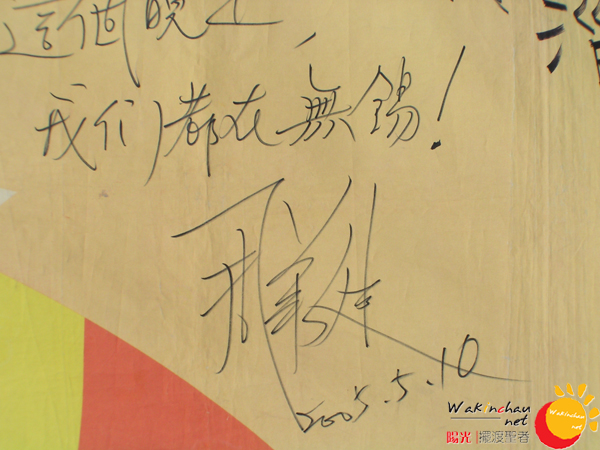 這個晚上,
我们都在無錫!
2005.5.10
Wakinchau
.net
陽光|擺渡聖者
Wakinchau
net